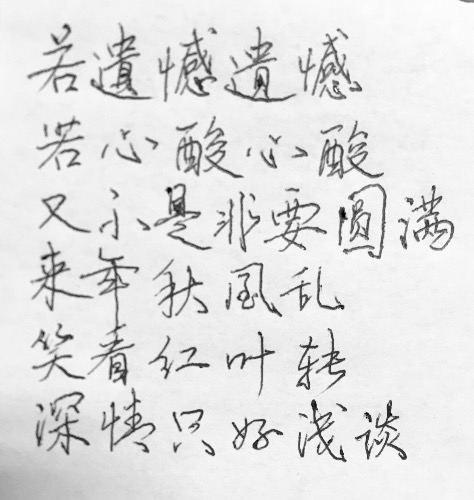 若遺憾遺憾
若心酸心酸
又不是非要圆满
来年秋風乱
笑看红叶转
深情只好浅谈